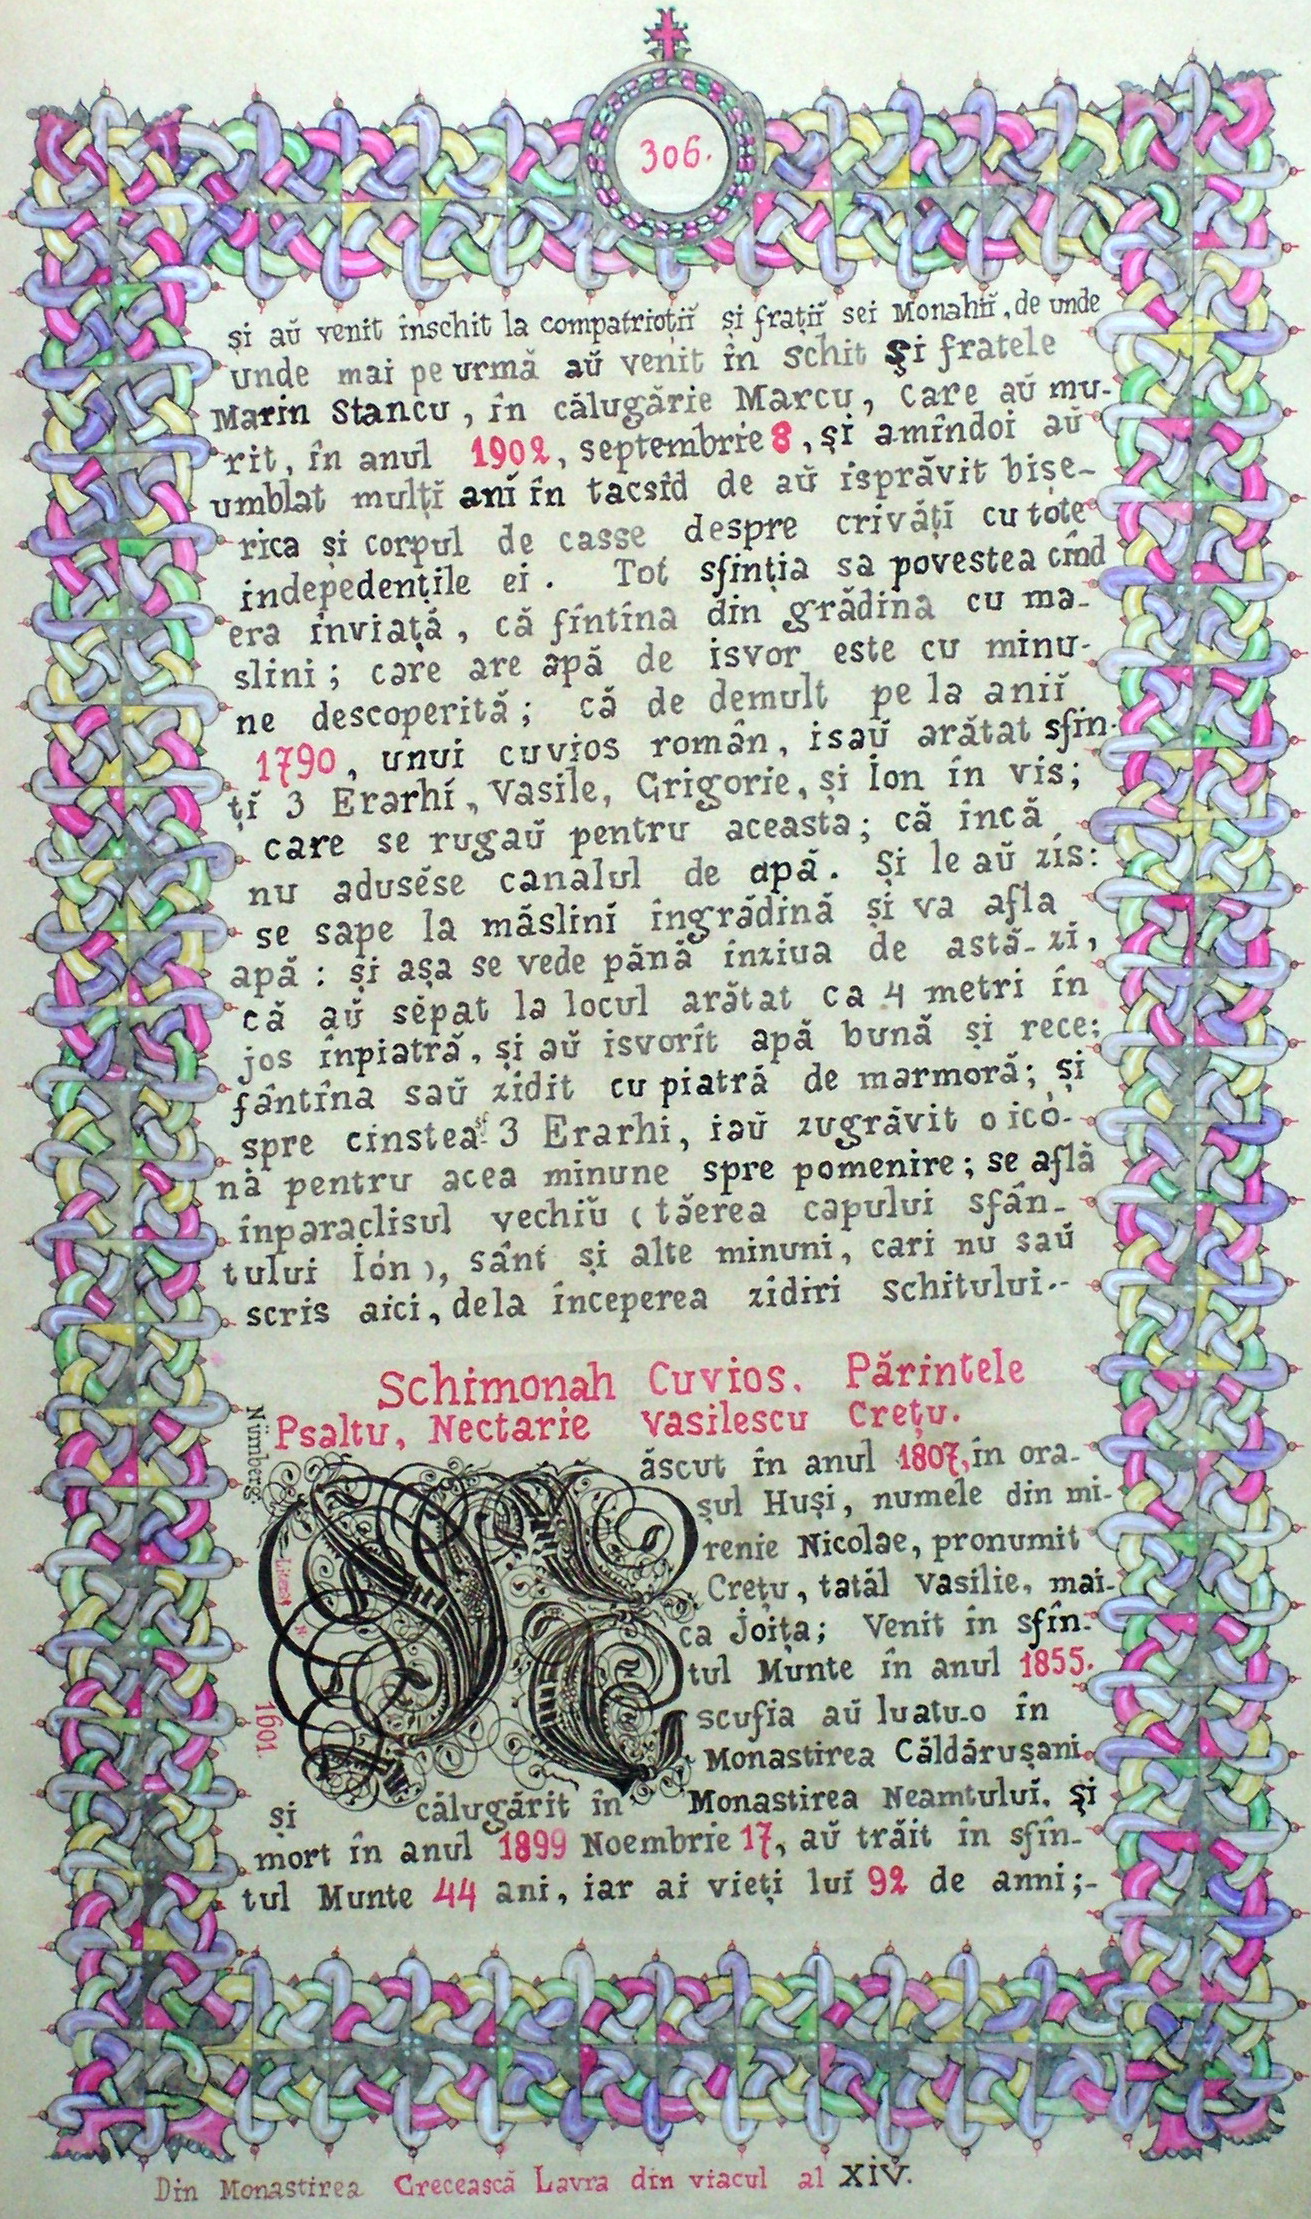 306.
și aŭ venit înschit la compatrioțiĭ și frațiĭ sei Monahiĭ, de unde
unde mai pe urmă aŭ venit în schit și fratele
Marin Stancu, în călugărie Marcu, care aŭ mu-
rit, în anul 1902, septembrie 8, și amîndoi aŭ
umblat mulțĭ anĭ în tacsîd de aŭ isprăvit bise-
rica și corpul de casse despre crivățĭ cu tote
indepedențile ei. Tot sfinția sa povestea cînd
era înviață, că fîntîna din grădina cu ma-
slini; care are apă de isvor este cu minu-
ne descoperită; că de demult pe la aniĭ
1790, unui cuvios român, isaŭ arătat sfin-
țĭ 3 Erarhĭ, Vasile, Grigorie, și Ion în vis;
care se rugaŭ pentru aceasta; că încă
nu adusése canalul de apă. și le aŭ zis:
se sape la măslinĭ îngrădină și va afla
apă: și așa se vede până înziua de astă-zi,
că aŭ sépat la locul arătat ca 4 metri în
jos înpiatră, și aŭ isvorît apă bună și rece;
fântîna saŭ zidit cu piatră de marmoră; și
spre cinstea sf. 3 Erarhi, iaŭ zugrăvit o ico-
nă pentru acea minune spre pomenire; se află
înparaclisul vechiŭ (tăerea capului sfân-
tului Ión), sânt și alte minuni, cari nu saŭ
scris aici, dela începerea zidiri schitului.-
Schimonah Cuvios. Părintele
Psaltu, Nectarie Vasilescu Crețu.
Nürnberg.
Literat N
1601.
N
ăscut în anul 1807, în ora-
șul Huși, numele din mi-
renie Nicolae, pronumit
Crețu, tatăl Vasilie, mai-
ca Joița; Venit în sfîn-
tul Munte în anul 1855.
scufia aŭ luatu-o în
Monastirea Căldărușani,
și călugărit în Monastirea Neamtuluĭ, și
mort în anul 1899 Noembrie 17, aŭ trăit în sfîn-
tul Munte 44 ani, iar ai vieți luĭ 92 de anni;-
Din Monastirea Grecească Lavra din viacul al XIV.